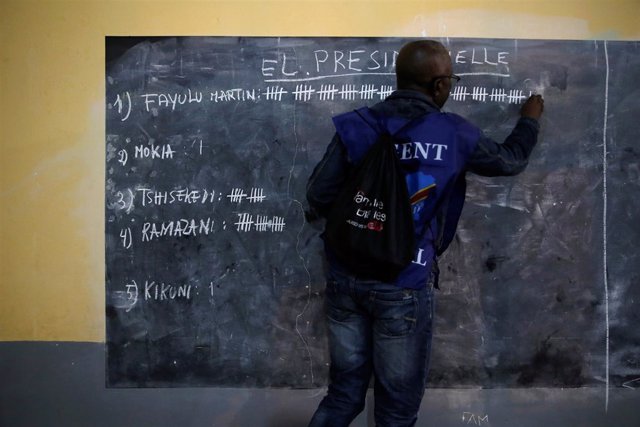 EL. PRESID ELLE
1) FAYULU MARTIN :
2) MOKIA : 1
3) TSHISEKEDI :
4) RAMAZANI :
5) KIKUNI : 1
ENT
L
FAM